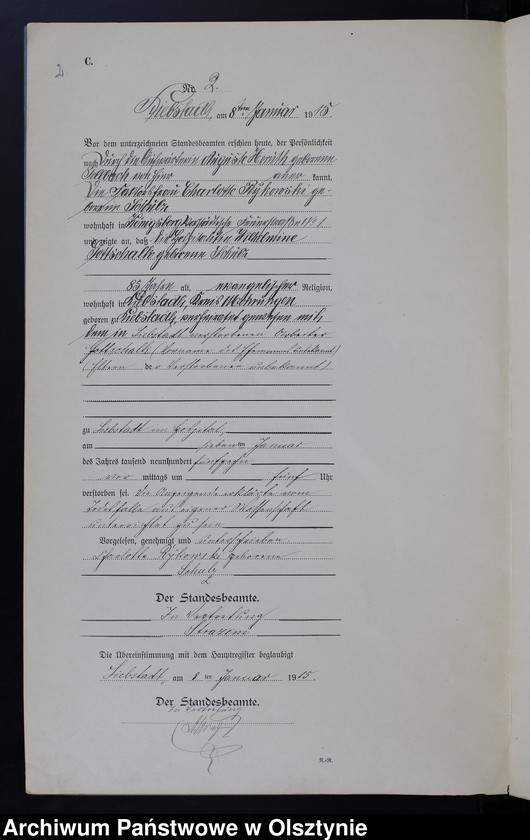 2
C.
Nr. 2.
Liebstadt, am 8ten Januar 1915.
Vor dem unterzeichneten Standesbeamten erschien heute, der Persönlichkeit
nach durch die Aufwärterin August geborene
von hier kannt,
die Charlotte Rykowski ge-
borene Schulz
wohnhaft in Königsberg
und zeigte an, daß die Wilhelmine
Gottschalk, geborene Schulz
83 Jahre alt, evangelischer Religion,
wohnhaft in Liebstadt, Kreis Mohrungen
geboren zu Liebstadt, verheiratet gewesen mit
dem in Liebstadt verstorbenen Arbeiter
Gottschalk (Vorname des Ehemanns unbekannt)
(Eltern der Verstorbenen unbekannt)
zu Liebstadt im Hospital,
am siebenten Januar
des Jahres tausend neunhundert fünfzehn
vor mittags um fünf Uhr
verstorben sei. Die Anzeigende erklärte vom
Todesfalle aus eigener Wissenschaft
unterrichtet zu sein
Vorgelesen, genehmigt und unterschrieben
Charlotte Rykowski geborene
Schulz
Der Standesbeamte.
In Vertretung
Die Übereinstimmung mit dem Hauptregister beglaubigt
Liebstadt, am 8 ten Januar 1915.
Der Standesbeamte.
In Vertretung
R.-R.
Archiwum Państwowe w Olsztynie